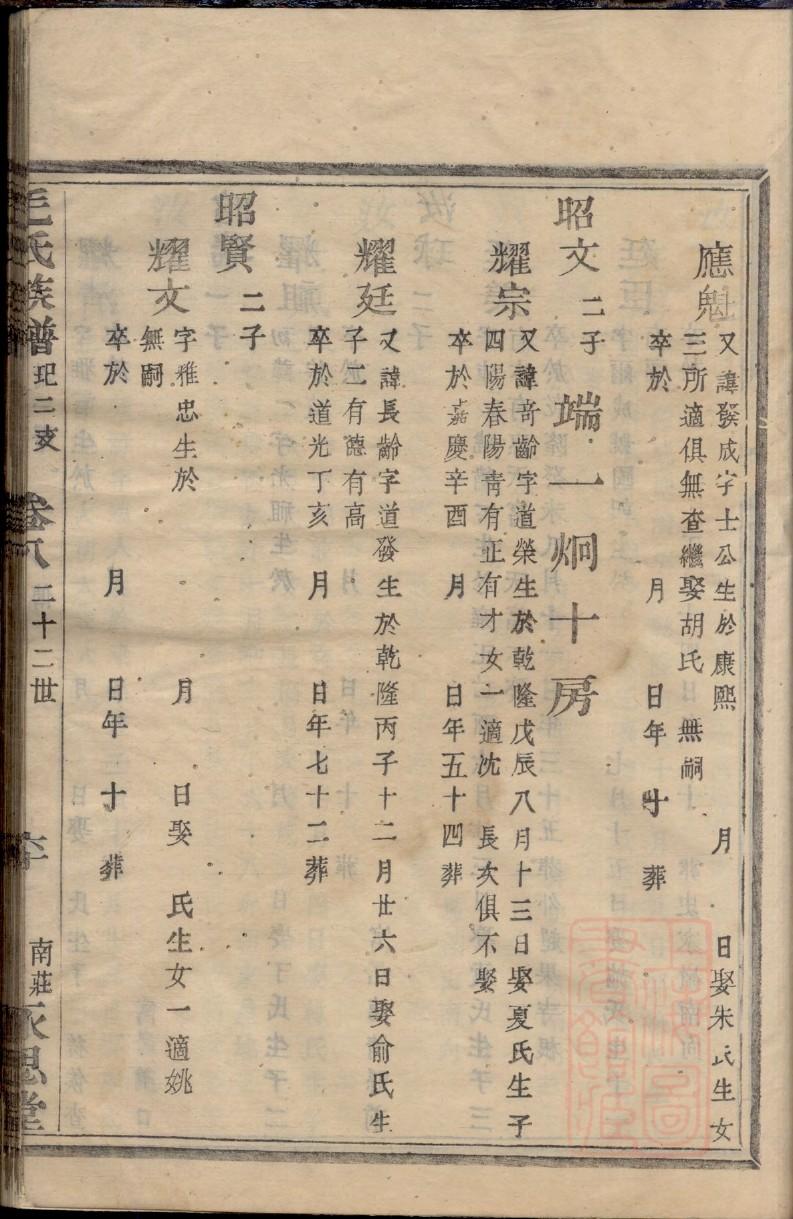 應魁
又諱發成字士公生於康熙 月 日娶朱氏生女
三所適俱無查繼娶胡氏 無嗣
卒於 月 日年 十 葬
端一炯十房
昭文 二子
耀宗
又諱奇齡字道榮生於乾隆戊辰八月十三日娶夏氏生子
四陽春陽靑有正有才女一適沈 長次俱不娶
卒於嘉慶辛酉 月 日年五十四葬
耀廷
又諱長齡字道發生於乾隆丙子十二月廿六日娶俞氏生
子二有德有高
卒於道光丁亥 月 日年七十二葬
昭賢 二子
耀文
字雅忠生於 月 日娶 氏生女一適姚
無嗣
卒於 月 日年 十 葬
毛氏族譜 二支 卷八 二十二世 南莊永思堂